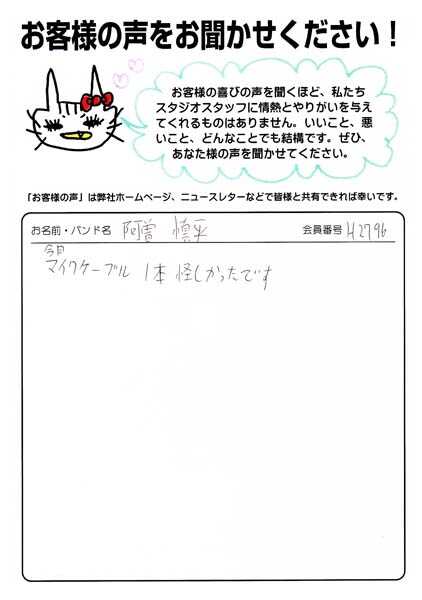 お客様の声をお聞かせください！
お客様の喜びの声を聞くほど、私たち
スタジオスタッフに情熱とやりがいを与え
てくれるものはありません。いいこと、悪
いこと、どんなことでも結構です。ぜひ、
あなた様の声を聞かせてください。
「お客様の声」は弊社ホームページ、ニュースレターなどで皆様と共有できれば幸いです。
お名前・バンド名 阿曽 慎平 会員番号 H2796
今日
マイクケーブル 1本 怪しかったです